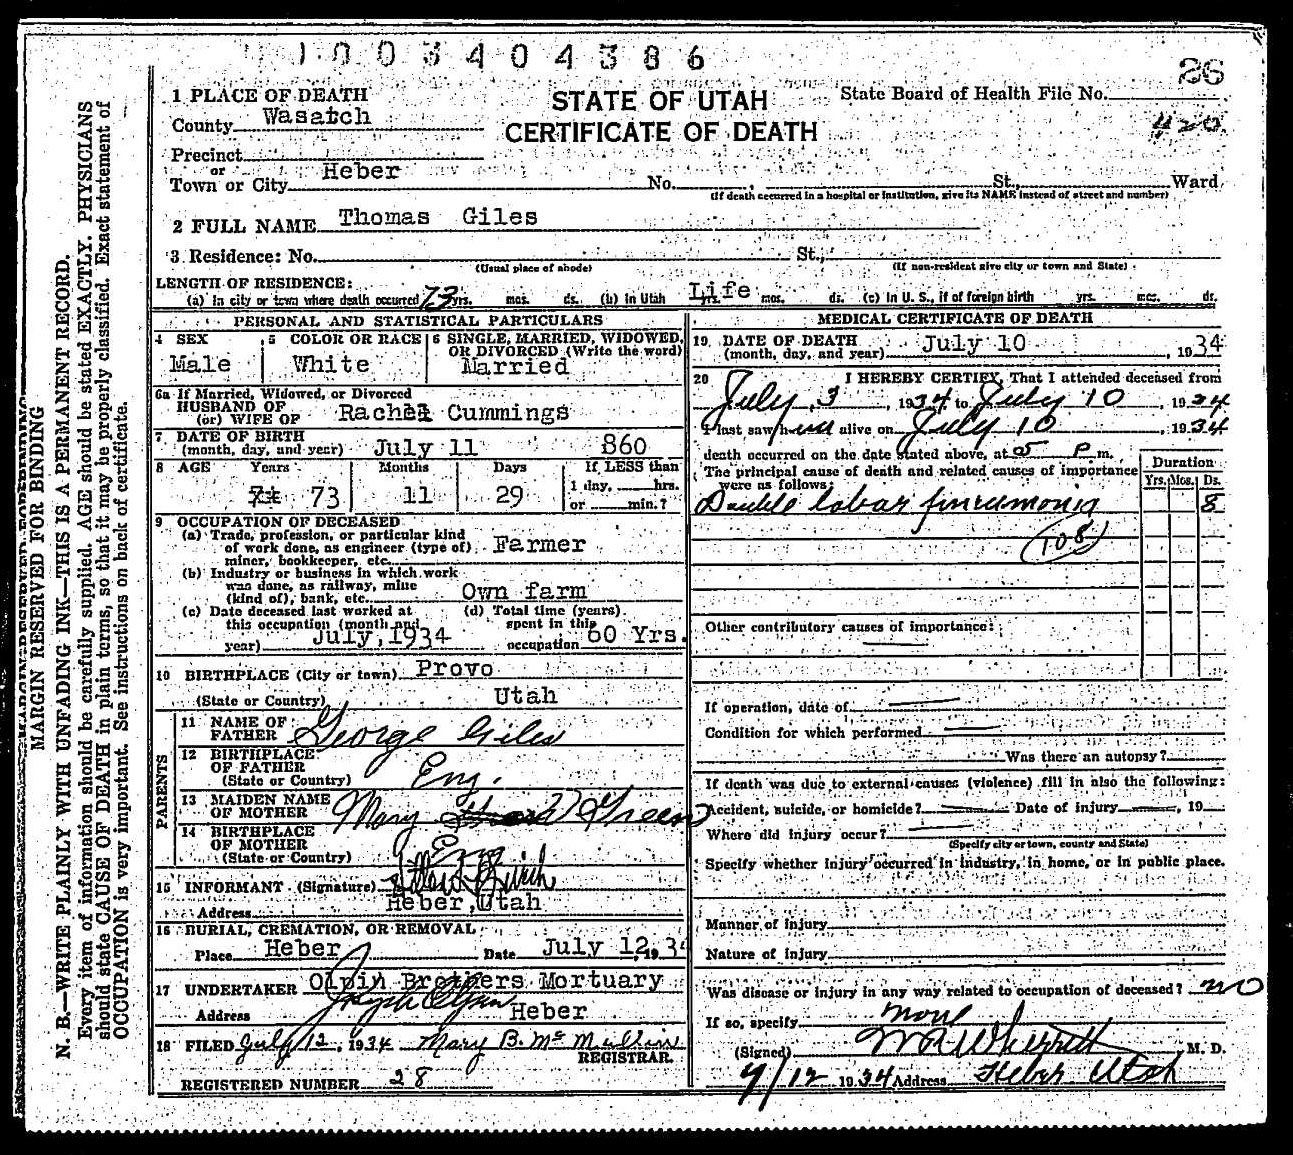 1003404386
26
1 PLACE OF DEATH
STATE OF UTAH
State Board of Health File No.
County Wasatch
CERTIFICATE OF DEATH
#20
Precinct
or
Town or City Heber No. , St., Ward
(If death occurred in a hospital or institution, give its NAME instead of street and number)
2 FULL NAME Thomas Giles
3 Residence: No. St.,
(Usual place of abode) (If non-resident give city or town and State)
LENGTH OF RESIDENCE:
(a) In city or town where death occurred 73 yrs. mos. ds. (b) In Utah Life yrs. mos. ds. (c) In U. S., if of foreign birth yrs. mos. ds.
PERSONAL AND STATISTICAL PARTICULARS
4 SEX
Male
5 COLOR OR RACE
White
6 SINGLE, MARRIED, WIDOWED,
OR DIVORCED (Write the word)
Married
6a If Married, Widowed, or Divorced
HUSBAND OF
(or) WIFE OF Rachel Cummings
7 DATE OF BIRTH
(month, day, and year) July 11 860
8 AGE Years Months Days If LESS than
1 day, hrs.
73 11 29
or min.?
9 OCCUPATION OF DECEASED
(a) Trade, profession, or particular kind
of work done, as engineer (type of) Farmer
miner, bookkeeper, etc.
(b) Industry or business in which work
was done, as railway, mine
(kind of), bank, etc. Own farm
(c) Date deceased last worked at
this occupation (month and
year) July,1934
(d) Total time (years)
spent in this
occupation 60 Yrs.
10 BIRTHPLACE (City or town) Provo
(State or Country) Utah
PARENTS
11 NAME OF
FATHER George Giles
12 BIRTHPLACE
OF FATHER
(State or Country) Eng.
13 MAIDEN NAME
OF MOTHER Mary Green
14 BIRTHPLACE
OF MOTHER
(State or Country) Eng
15 INFORMANT (Signature)
Address Heber,Utah
16 BURIAL, CREMATION, OR REMOVAL
Place Heber Date July 12, 1934
17 UNDERTAKER Olpin Brothers Mortuary
Joseph Olpin
Address Heber
18 FILED July 12, 1934 Mary B. McMullin
REGISTRAR.
REGISTERED NUMBER 28
MEDICAL CERTIFICATE OF DEATH
19 DATE OF DEATH
(month, day, and year) July 10, 1934
20 I HEREBY CERTIFY, That I attended deceased from
July 3, 1934, to July 10, 1934
I last saw him alive on July 10, 1934
death occurred on the date stated above, at 5 P m.
The principal cause of death and related causes of importance
were as follows:
Duration
Yrs. Mos. Ds.
Double lobar pneumonia 8
108
Other contributory causes of importance:
If operation, date of
Condition for which performed
Was there an autopsy?
If death was due to external causes (violence) fill in also the following:
Accident, suicide, or homicide? Date of injury , 19
Where did injury occur?
(Specify city or town, county and State)
Specify whether injury occurred in industry, in home, or in public place.
Manner of injury
Nature of injury
Was disease or injury in any way related to occupation of deceased? no
If so, specify none
(Signed) M. D.
7/12 1934 Address Heber Utah
MARGIN RESERVED FOR BINDING
N. B.—WRITE PLAINLY WITH UNFADING INK—THIS IS A PERMANENT RECORD.
Every item of information should be carefully supplied. AGE should be stated EXACTLY. PHYSICIANS
should state CAUSE OF DEATH in plain terms, so that it may be properly classified. Exact statement of
OCCUPATION is very important. See instructions on back of certificate.